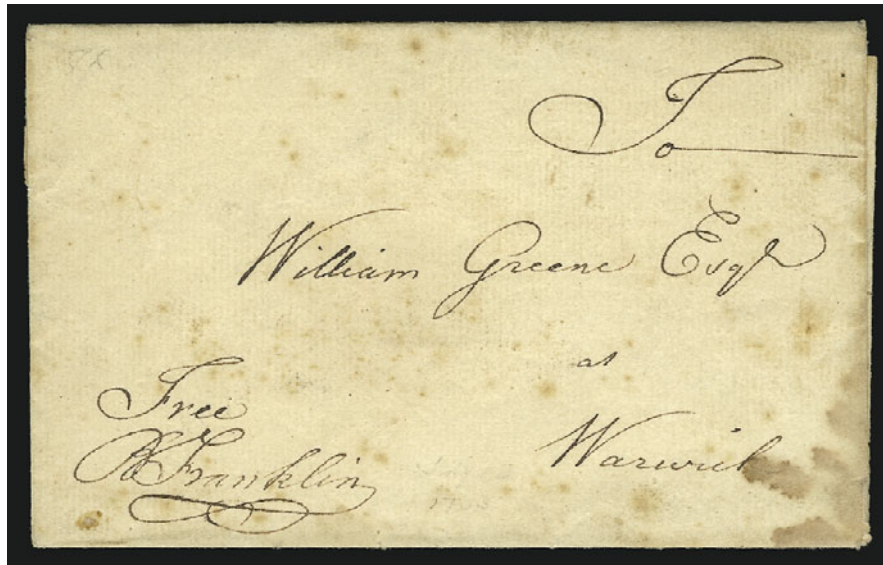 To
William Greene Esqr
at
Warwick
Free
B Franklin